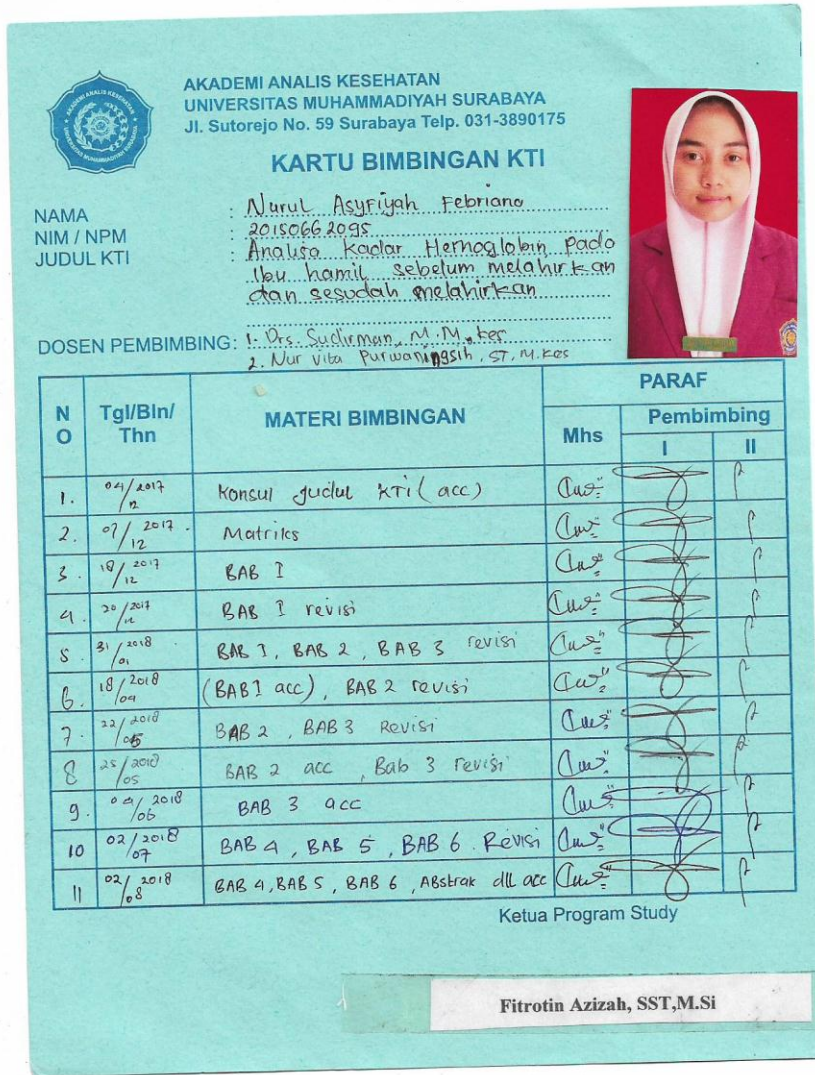 AKADEMI ANALIS KESEHATAN
UNIVERSITAS MUHAMMADIYAH SURABAYA
Jl. Sutorejo No. 59 Surabaya Telp. 031-3890175
KARTU BIMBINGAN KTI
NAMA : Nurul Asyfiyah Febriana
NIM / NPM : 20150662095
JUDUL KTI : Analisa Kadar Hemoglobin Pada
Ibu hamil sebelum melahirkan
dan sesudah melahirkan
DOSEN PEMBIMBING: 1. Drs. Sudirman, M.M, Kes
2. Nur Vita Purwaningsih, ST, M.Kes
NO Tgl/Bln/Thn MATERI BIMBINGAN PARAF
Mhs Pembimbing
I II
1. 04/12 2017 Konsul Judul KTI (acc)
2. 07/12 2017 Matriks
3. 18/12 2017 BAB I
4. 20/12 2017 BAB I revisi
5 31/01 2018 BAB 1, BAB 2, BAB 3 revisi
6. 18/04 2018 (BAB 1 acc), BAB 2 revisi
7. 22/05 2018 BAB 2, BAB 3 Revisi
8 25/05 2018 BAB 2 acc, Bab 3 revisi
9. 04/06 2018 BAB 3 acc
10 02/07 2018 BAB 4, BAB 5, BAB 6. Revisi
11 02/08 2018 BAB 4, BAB 5, BAB 6, ABstrak dll acc
Ketua Program Study
Fitrotin Azizah, SST,M.Si